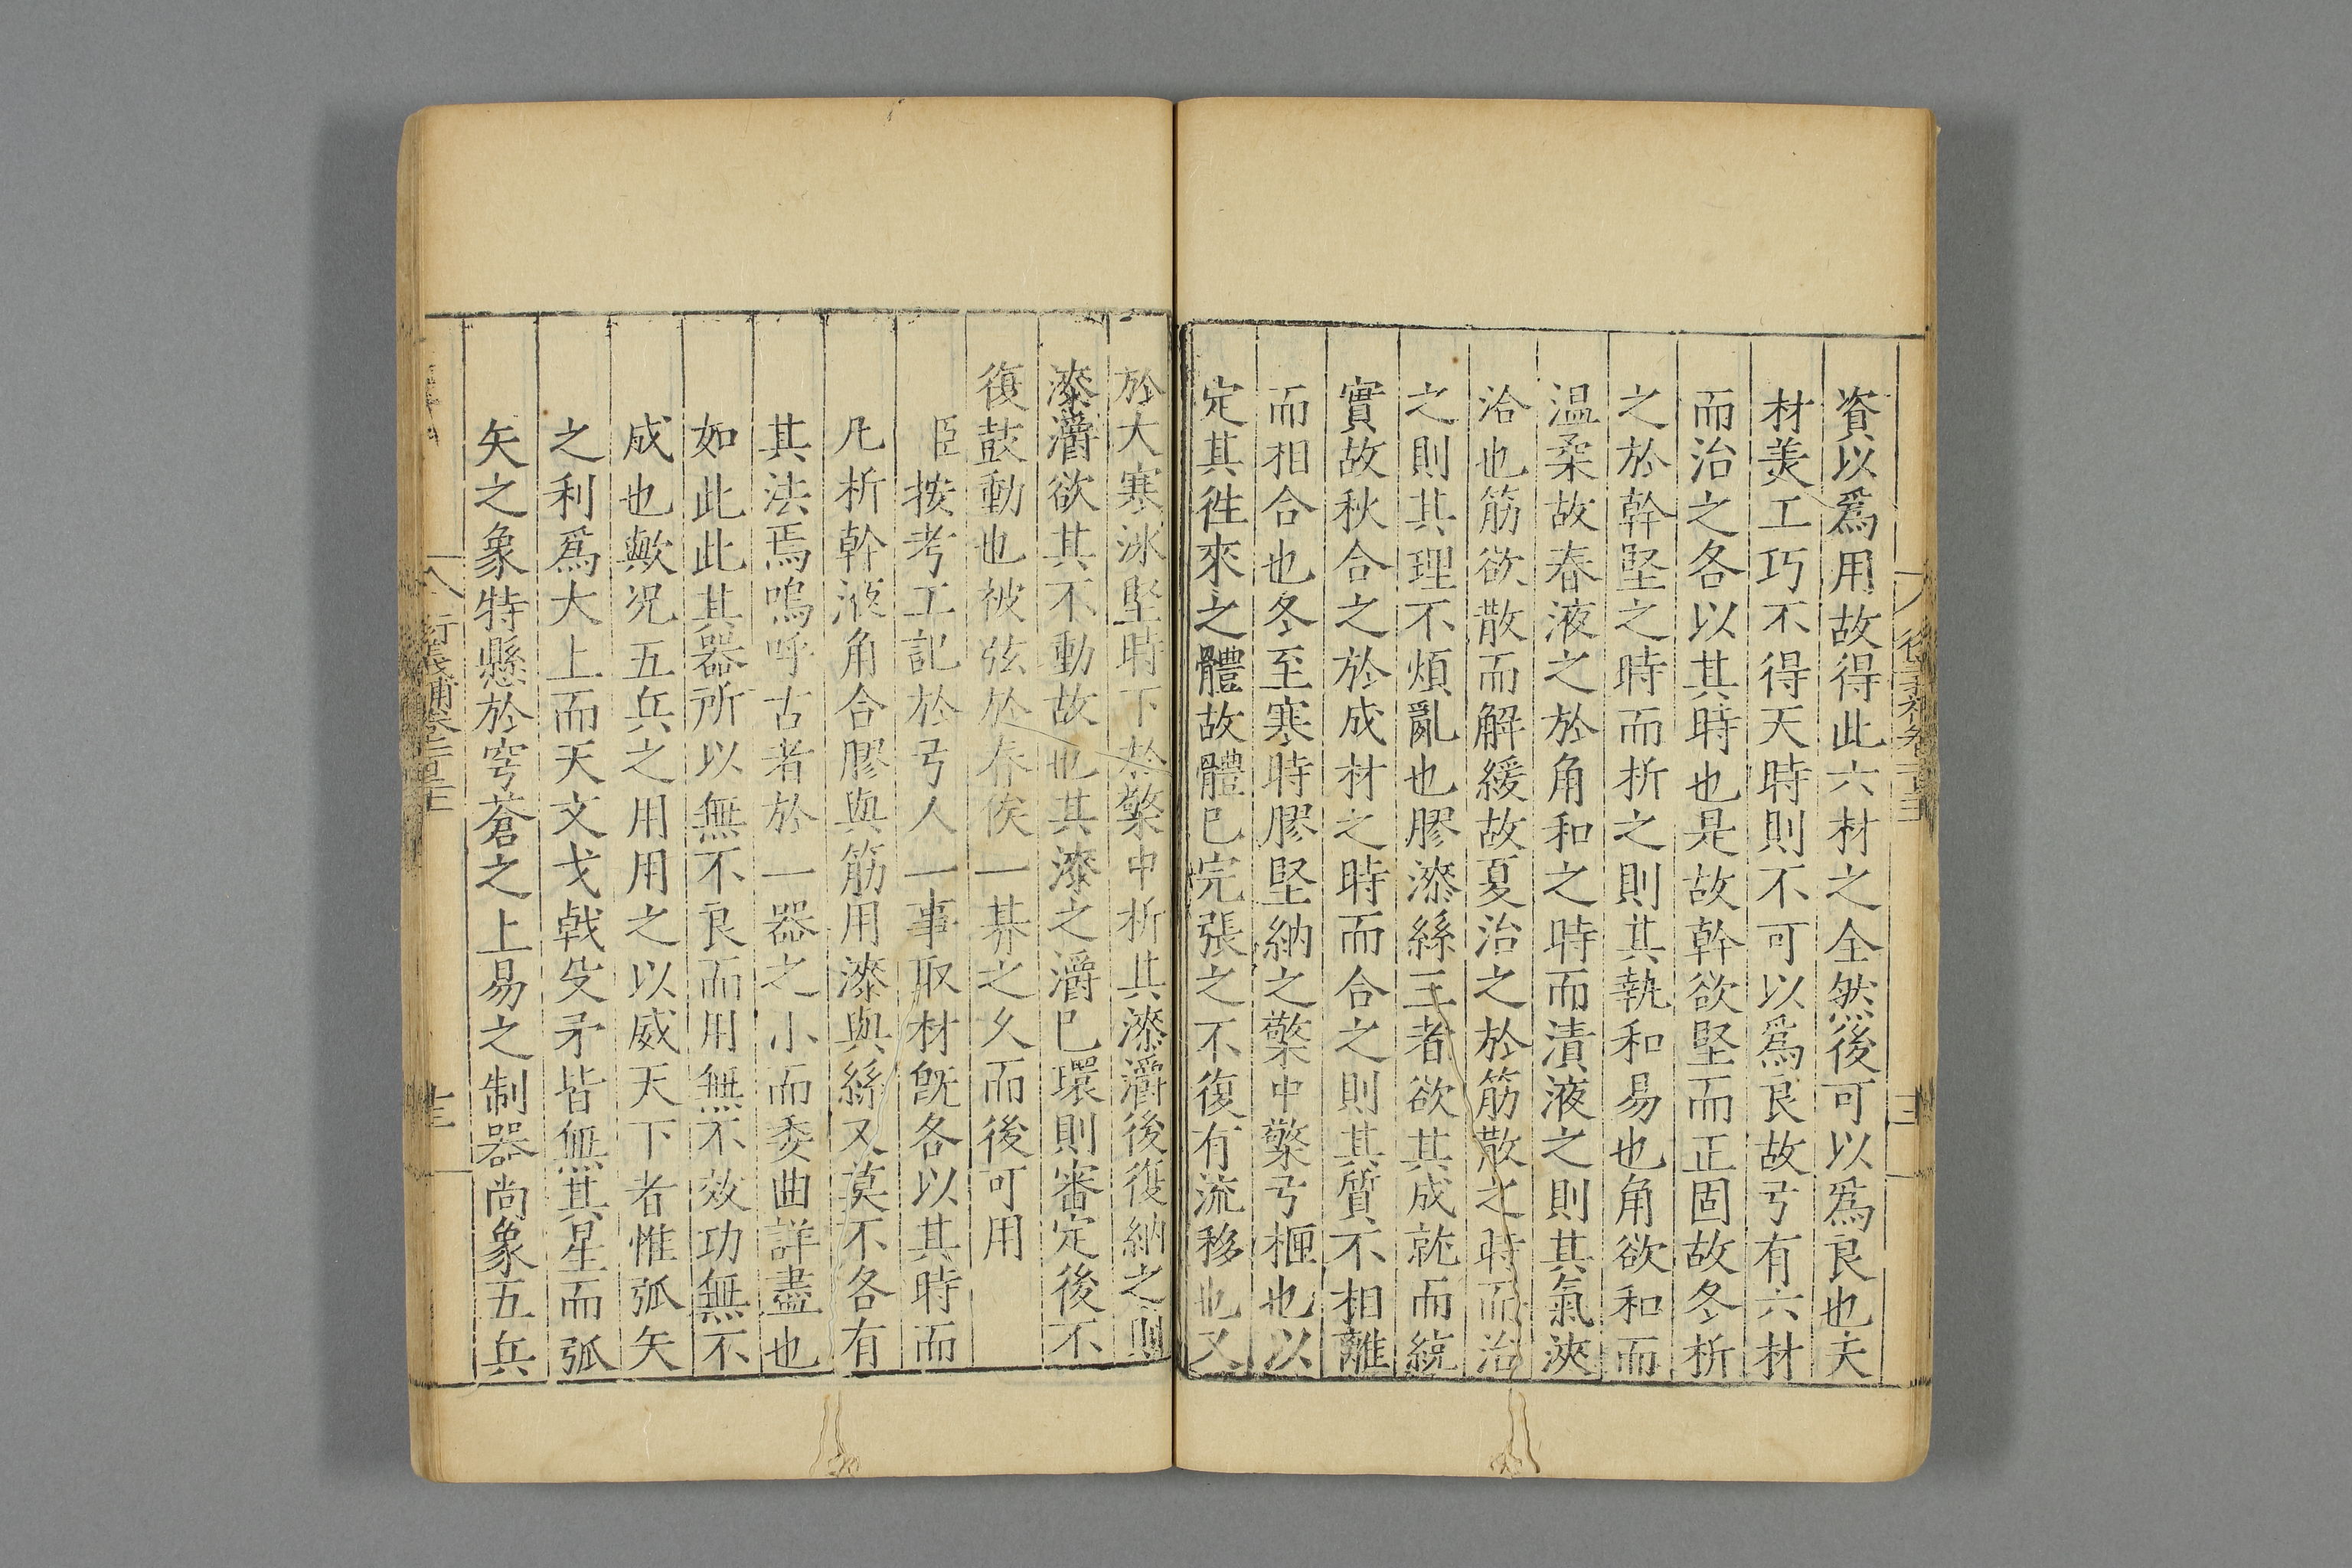 資以爲用故得此六材之全然後可以爲良也夫
材羙工巧不得天時則不可以爲良故弓有六材
而治之各以其時也是故幹欲堅而正固故冬析
之於幹堅之時而析之則其執和易也角欲和而
温柔故春液之於角和之時而漬液之則其氣浹
洽也筋欲散而解緩故夏治之於筋散之時而治
之則其理不煩亂也膠漆絲三者欲其成就而綂
實故秋合之於成材之時而合之則其質不相離
而相合也冬至寒時膠堅納之檠中檠弓柙也以
定其徃來之體故體已完張之不復有流移也又
於大寒冰堅時下於檠中析其漆灂後復納之則
漆灂欲其不動故也其漆之灂已環則審定後不
復鼓動也被弦於春俟一朞之久而後可用
臣按考工記於弓人一事取材旣各以其時而
凡析幹液角合膠與筋用漆與絲又莫不各有
其法焉嗚呼古者於一器之小而委曲詳盡也
如此此其器所以無不良而用無不效功無不
成也歟况五兵之用用之以威天下者惟弧矢
之利爲大上而天文戈戟殳矛皆無其星而弧
矢之象特懸於穹蒼之上易之制器尚象五兵